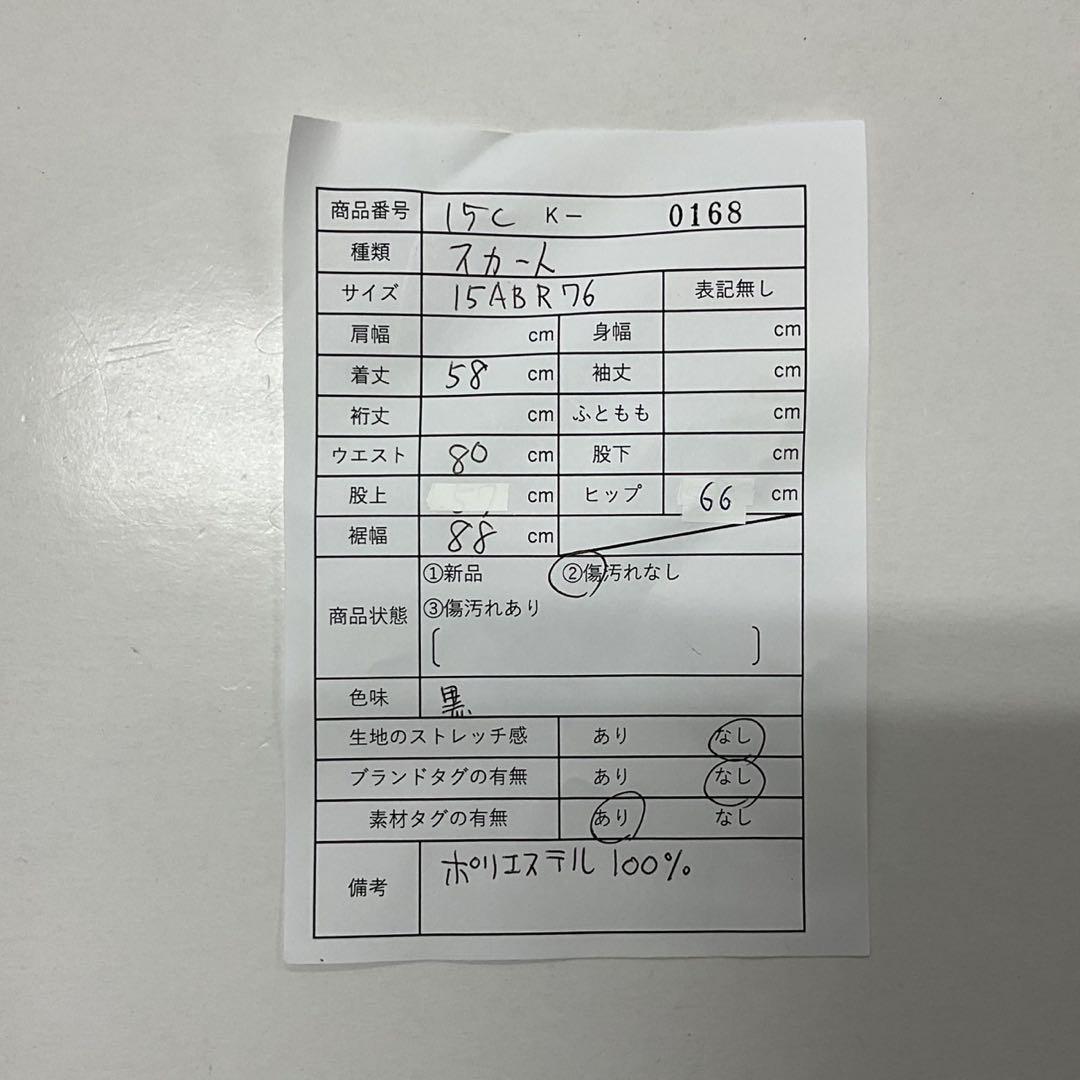 商品番号 15C K− 0168
種類 スカート
サイズ 15ABR76 表記無し
肩幅 cm 身幅 cm
着丈 58 cm 袖丈 cm
裄丈 cm ふともも cm
ウエスト 80 cm 股下 cm
股上 cm ヒップ 66 cm
裾幅 88 cm
商品状態 ①新品 ②傷汚れなし
③傷汚れあり
[ ]
色味 黒
生地のストレッチ感 あり なし
ブランドタグの有無 あり なし
素材タグの有無 あり なし
備考 ポリエステル 100%